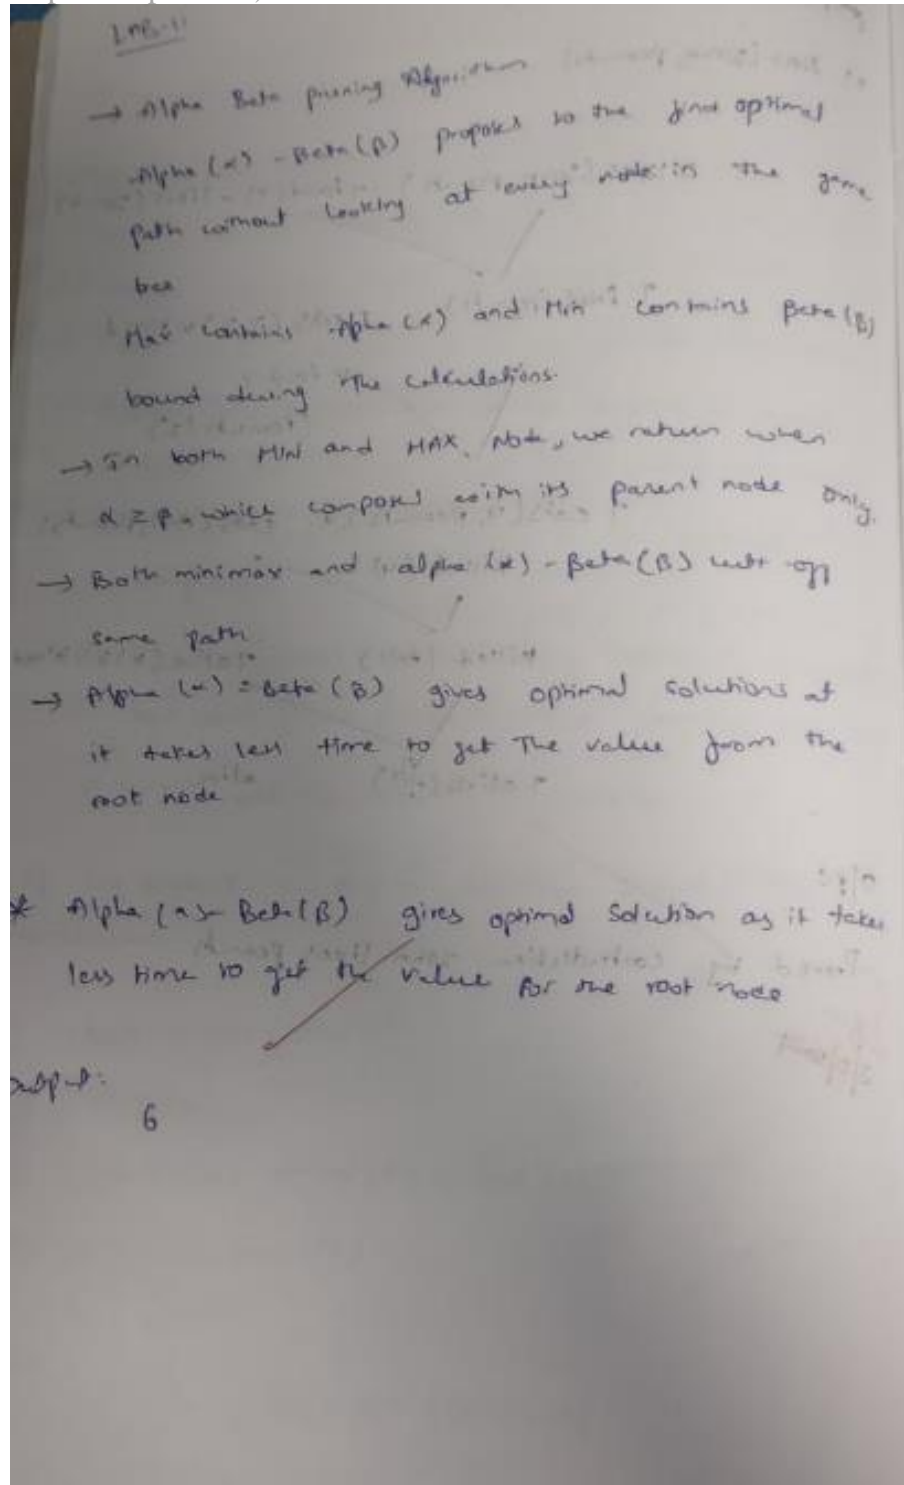 LAB-11
→ Alpha Beta pruning Algorithm
Alpha (α) - Beta (β) proposes to the find optimal
path without looking at every node in the game
tree
Max contains Alpha (α) and Min contains Beta (β)
bound during the calculations.
→ In both MIN and MAX Node, we return when
α ≥ β, which compares with its parent node only.
→ Both minimax and alpha (α) - Beta (β) cut off
same path
→ Alpha (α) - Beta (β) gives optimal solutions at
it takes less time to get The value from the
root node
* Alpha (α) - Beta (β) gives optimal Solution as it takes
less time to get the value for the root node
output:
6